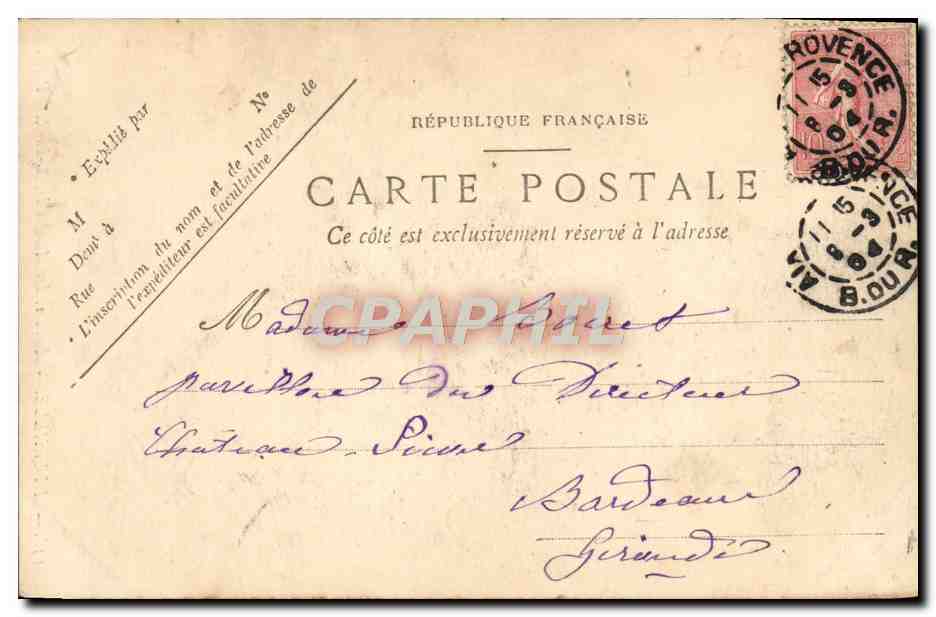 • Expédié par
M N°
Demt à
Rue
• L'inscription du nom et de l'adresse de
l'expéditeur est facultative
RÉPUBLIQUE FRANÇAISE
CARTE POSTALE
Ce côté est exclusivement réservé à l'adresse
ROVENCE
11 15
8 -9
04
B. DU R.
AIX
11 15
8 -9
04
B. DU R.
CPAPHIL
Madame
pavillon du Directeur
Château
Bordeaux
Gironde